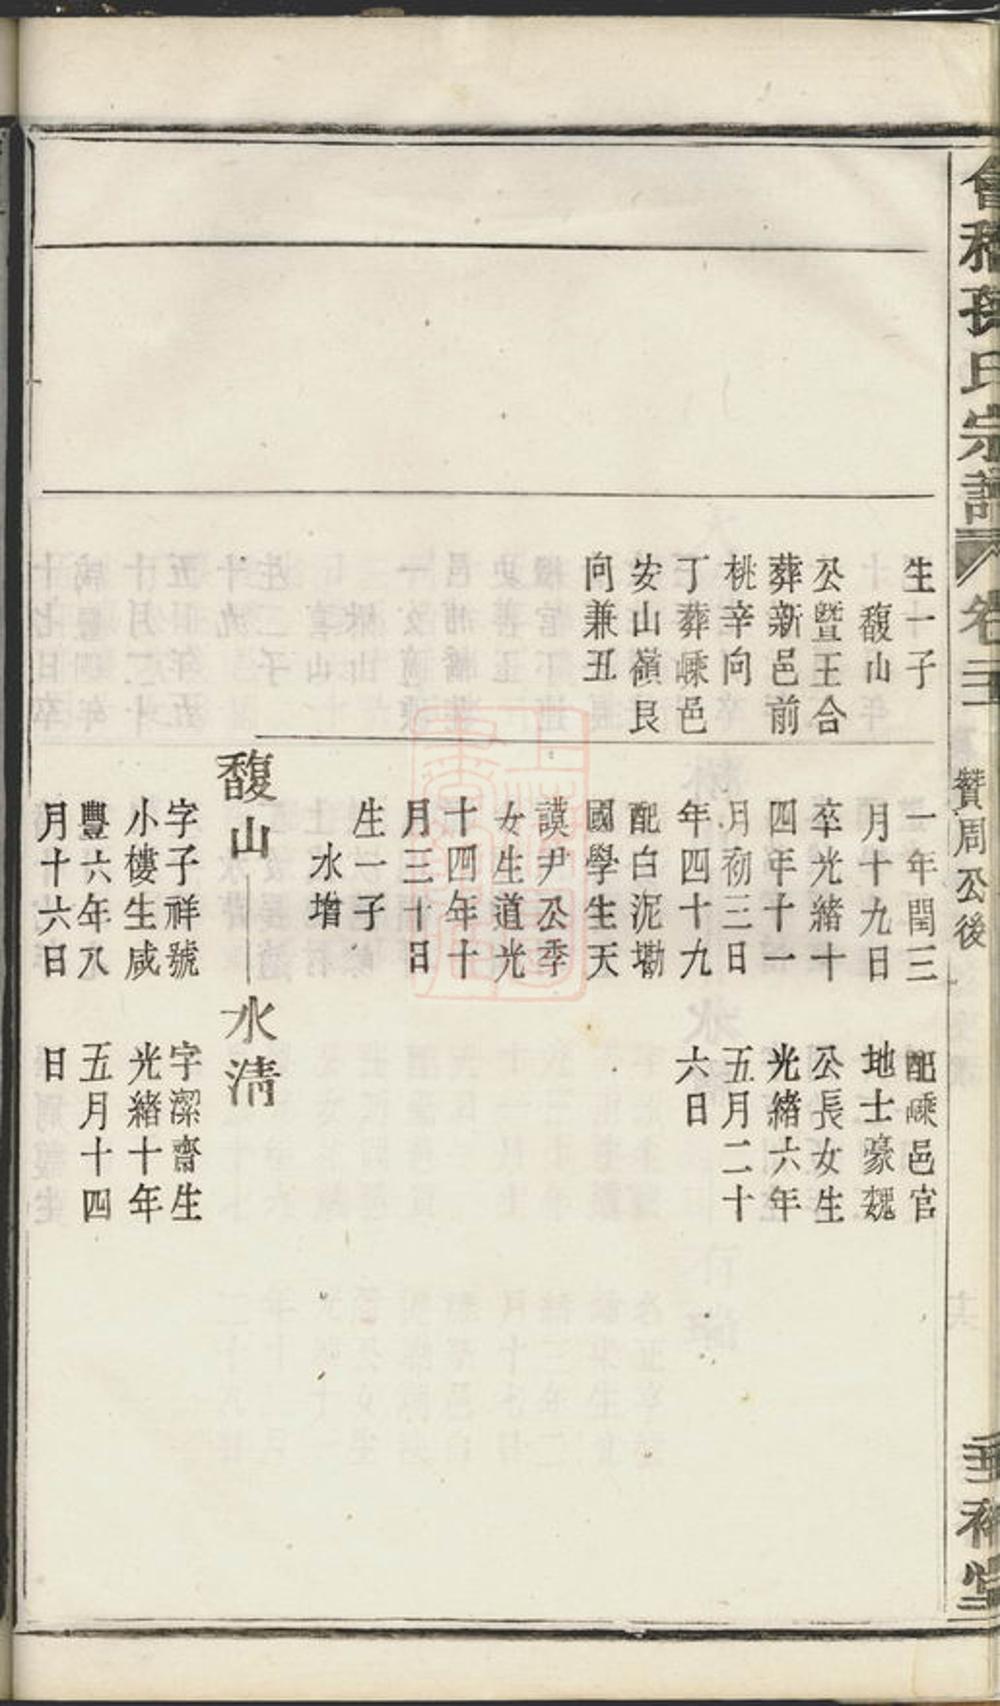 會稽孫氏宗譜
卷三
贊周公後
垂裕堂
生一子
馥山
公暨王合
葬新邑前
桃辛向
丁葬嵊邑
安山嶺艮
向兼丑
一年閏三
月十九日
卒光緒十
四年十一
月初三日
年四十九
配白泥墈
國學生天
謨尹公季
女生道光
十四年十
月三十日
生一子
水增
配嵊邑官
地士豪魏
公長女生
光緒六年
五月二十
六日
馥山
水清
字子祥號
小樓生咸
豐六年八
月十六日
字潔齋生
光緒十年
五月十四
日